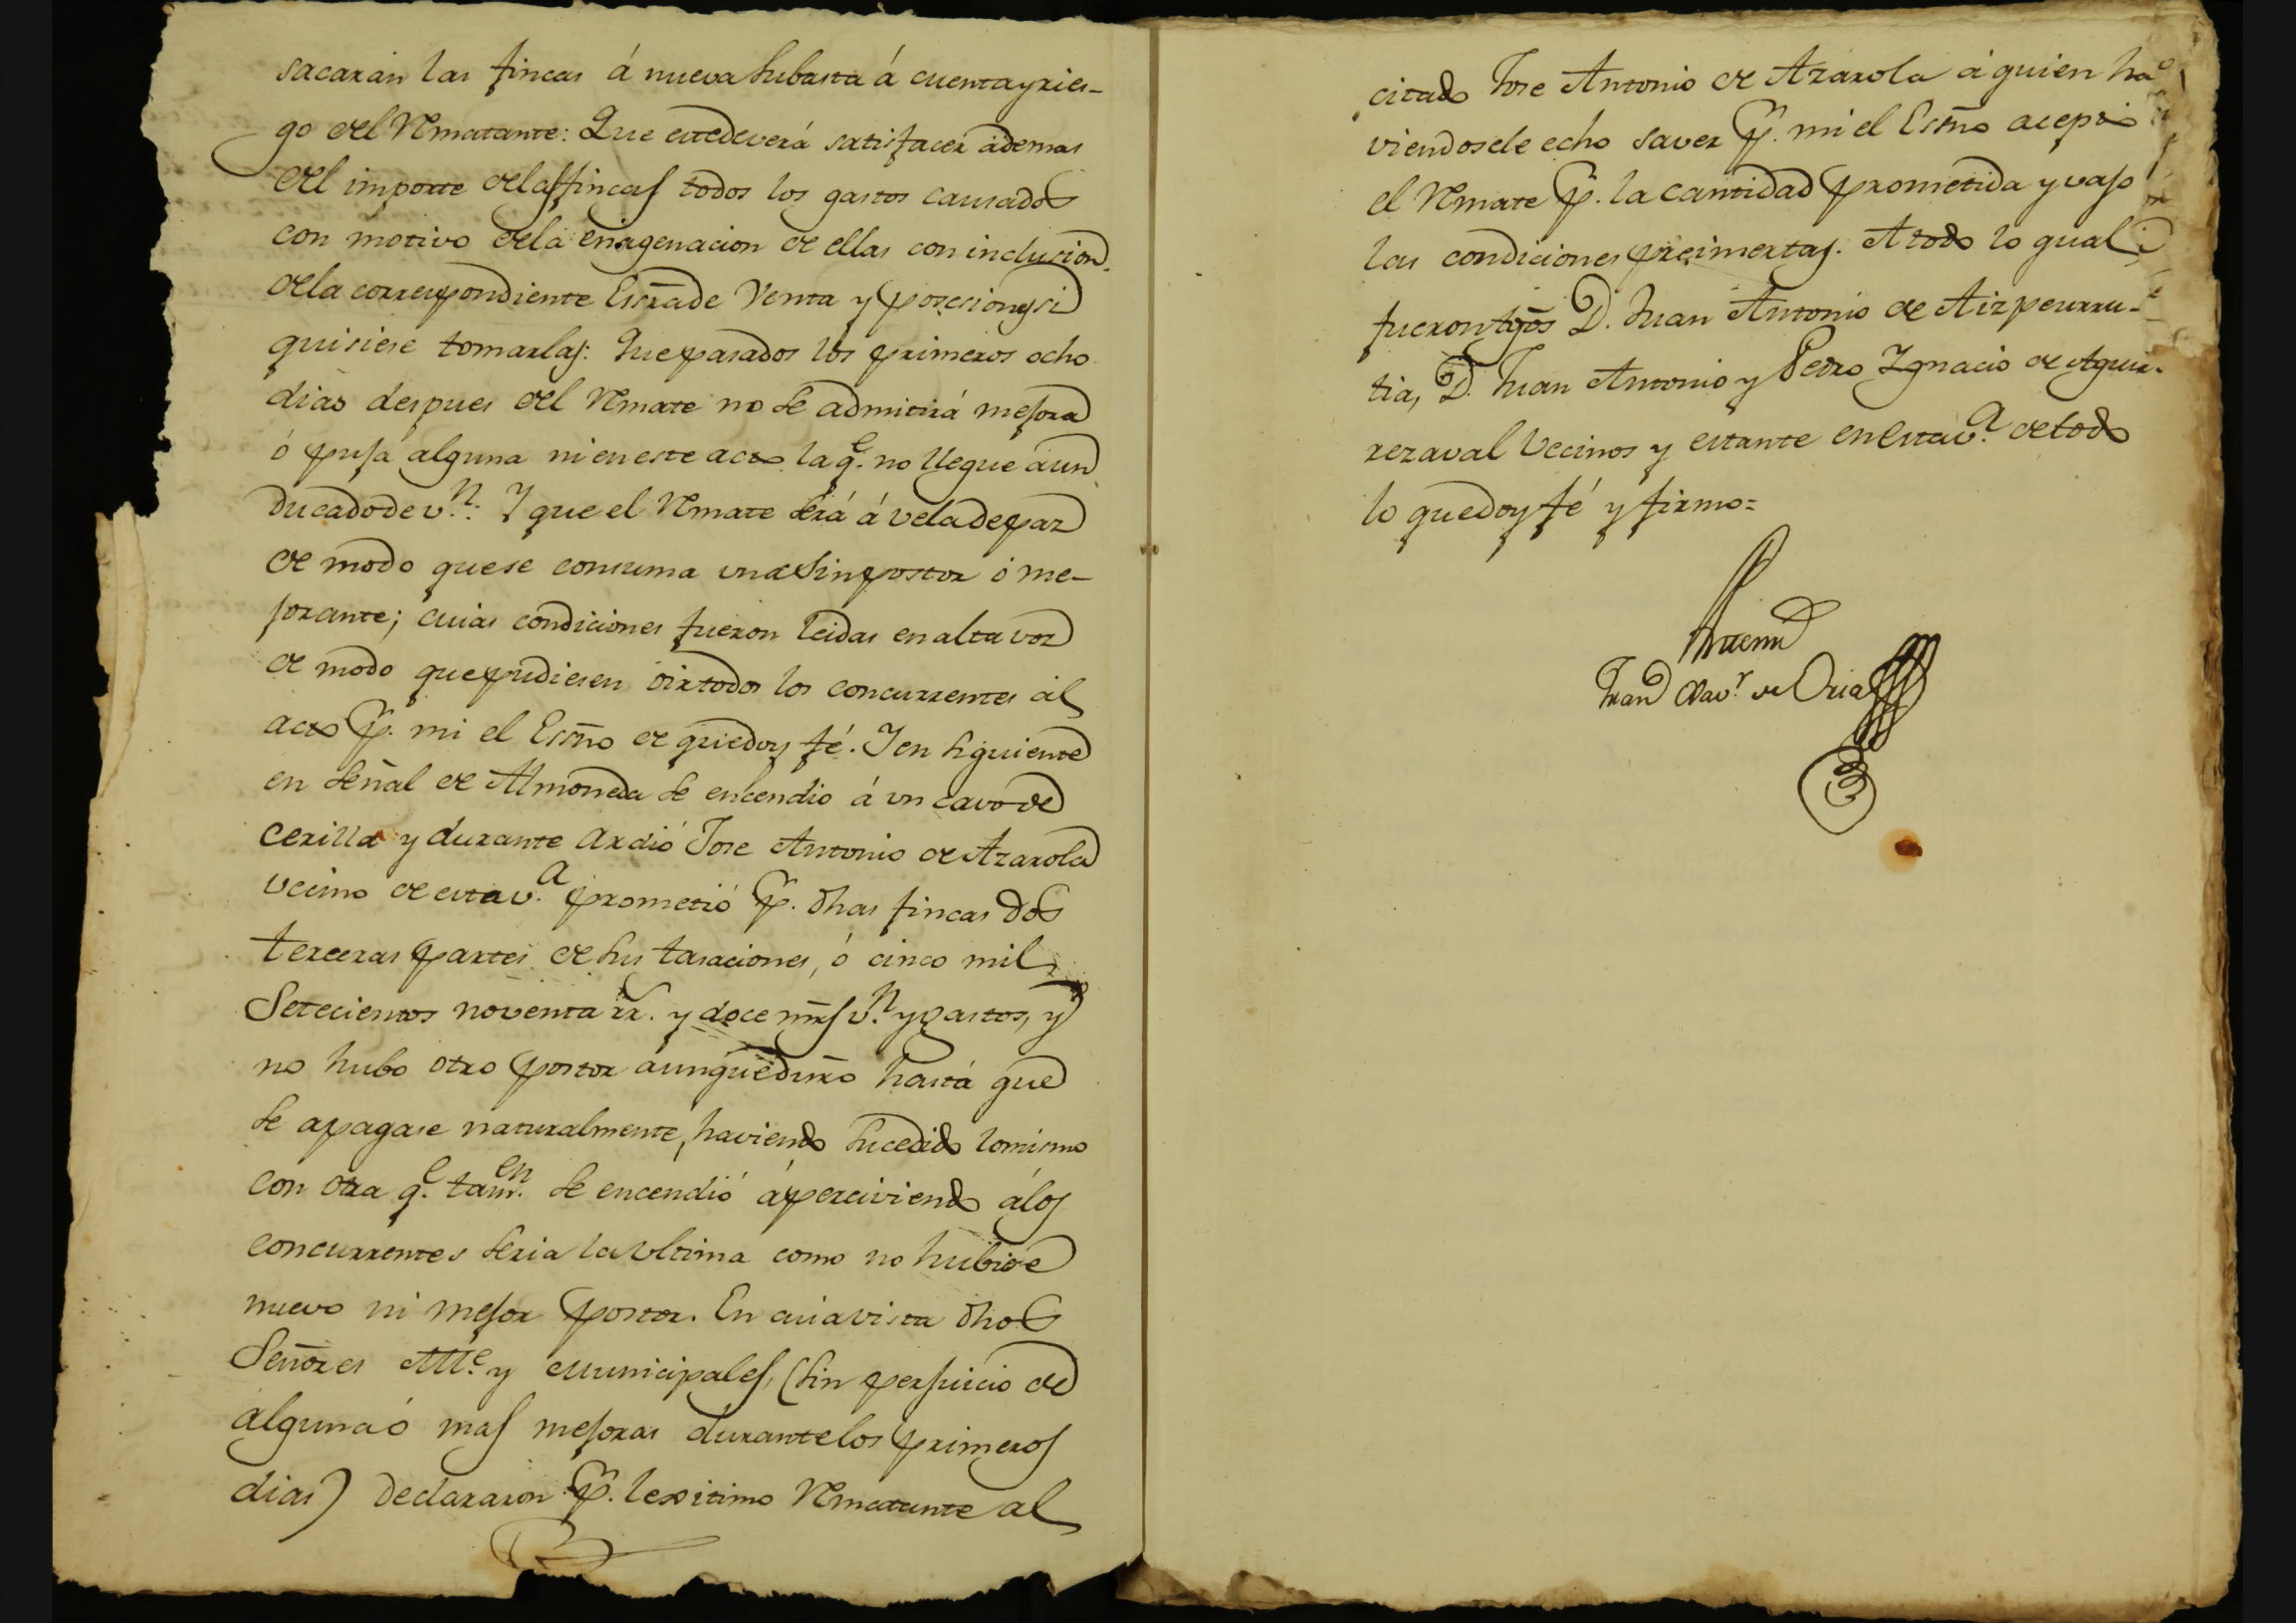 sacarán las fincas á nueva Subasta á cuenta y ries-
go del Rematante: Que este deverá satisfacer ademas
del importe de las fincas todos los gastos causados
con motivo de la enagenacion de ellas con inclusion
de la correspondiente Escrã de Venta y posesion, si
quisiese tomarlas: Que pasados los primeros ocho
dias despues del Remate no se admitirá mejora
ó puja alguna ni en este acto la q.e no llegue á un
Ducado de v.n: Y que el Remate será á vela de paz
de modo que se consuma una sin postor ó me-
jorante; cuias condiciones fueron leidas en alta voz
de modo que pudiesen oir todos los concurrentes al
acto p.r mi el Essño de que doy fé. Y en siguiente
en señal de Almoneda se encendio á un cavo de
cerilla y durante ardió Jose Antonio de Azarola
vecino de esta v.a prometió p.r dhas fincas dos
terceras partes de sus tasaciones, ó cinco mil
Setecientos noventa rr. y doce mrs v.n y gastos, y
no hubo otro postor aunque duró hasta que
se apagase naturalmente, haviendo sucedido lo mismo
con otra q.e tam.en se encendió aperciviendo á los
concurrentes seria la ultima como no hubiese
nuevo ni mejor postor. En cuia vista dhos
Señores Alc.e y Municipales, (sin perjuicio de
alguna ó mas mejoras durante los primeros
dias) declararon p.r lexitimo Rematante al
citado Jose Antonio de Azarola á quien ha-
viendosele echo saver p.r mi el Essño aceptó
el Remate p.r la cantidad prometida y vajo
las condiciones preinsertas. A todo lo qual
fueron tgõs D. Juan Antonio de Aizpeurru-
tia, D. Juan Antonio y Pedro Ygnacio de Aguir-
rezaval Vecinos y estante en esta v.a de todo
lo que doy fé y firmo=
Ante mi
Juan Xav.r de Oria